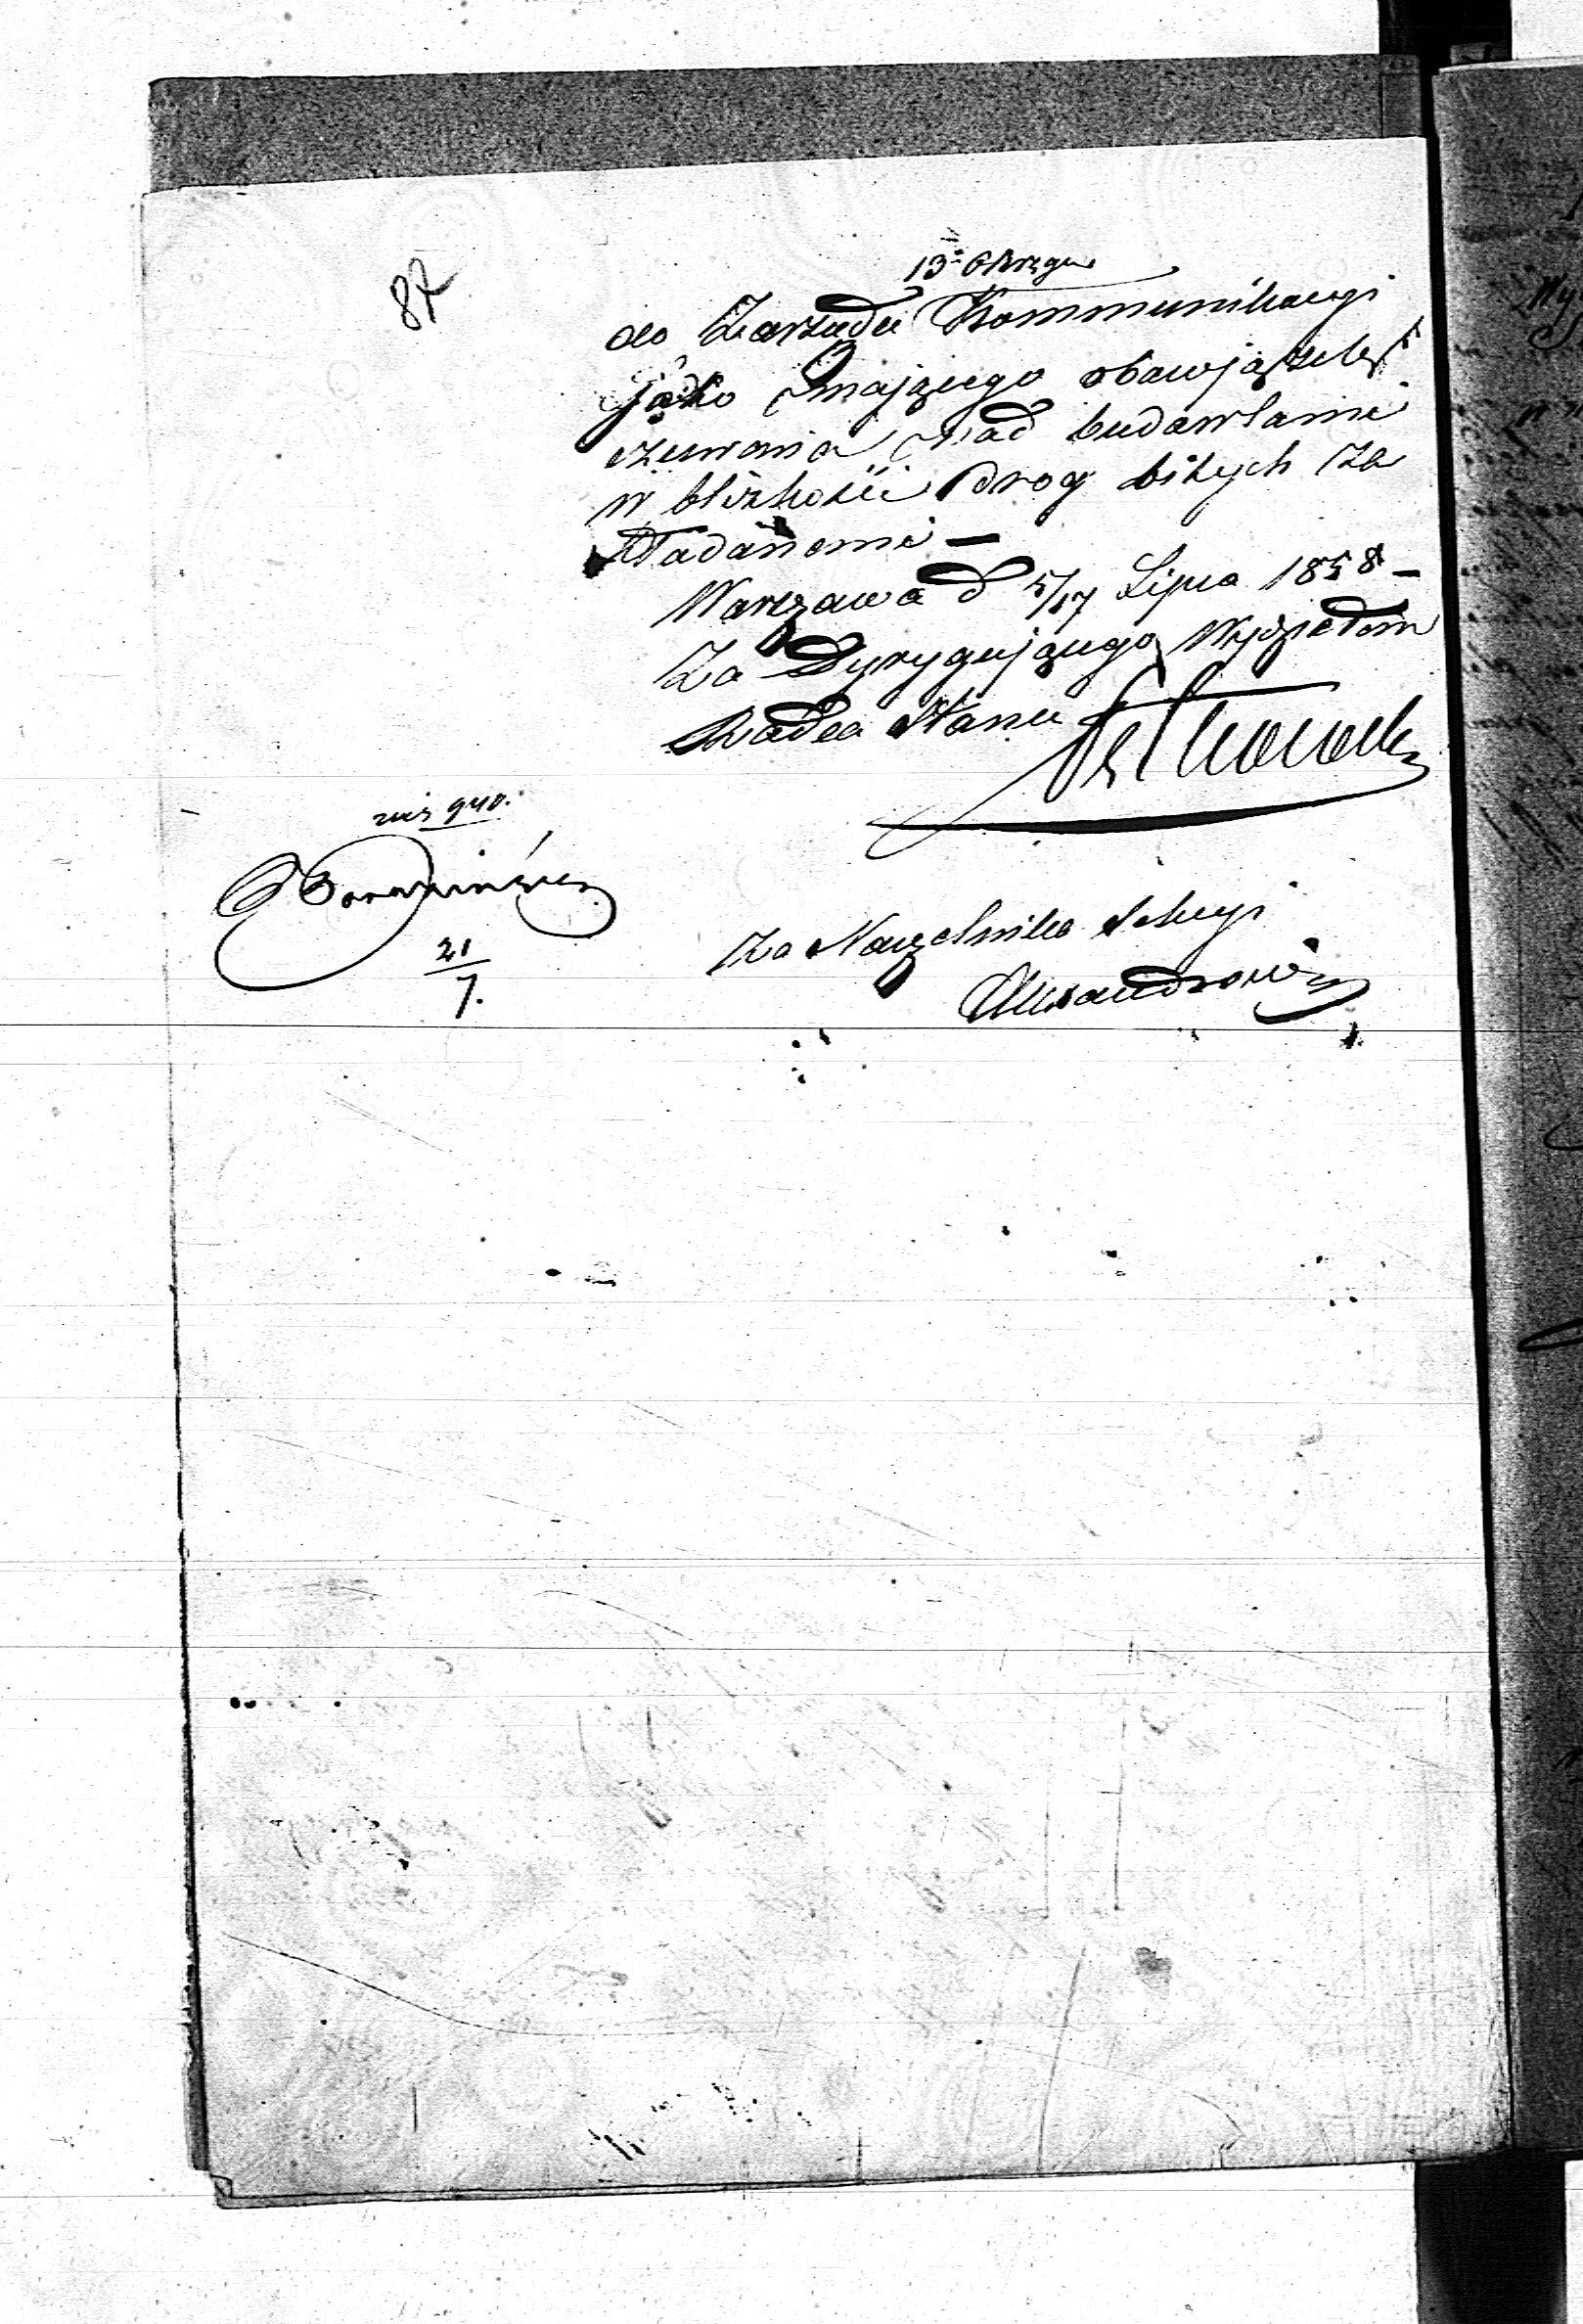 87
13º Okręgu
do Zarządu Kommunikacyi
jako mającego obowiązek
czuwania nad budowlami
w bliskości drog bitych za
kładanemi —
Warszawa d 5/17 Lipca 1858 —
Za Dyrygującego Wydziałem
Radca Stanu
940.
21
7.
Za Naczelnika Sekcyi
Alexandrowicz